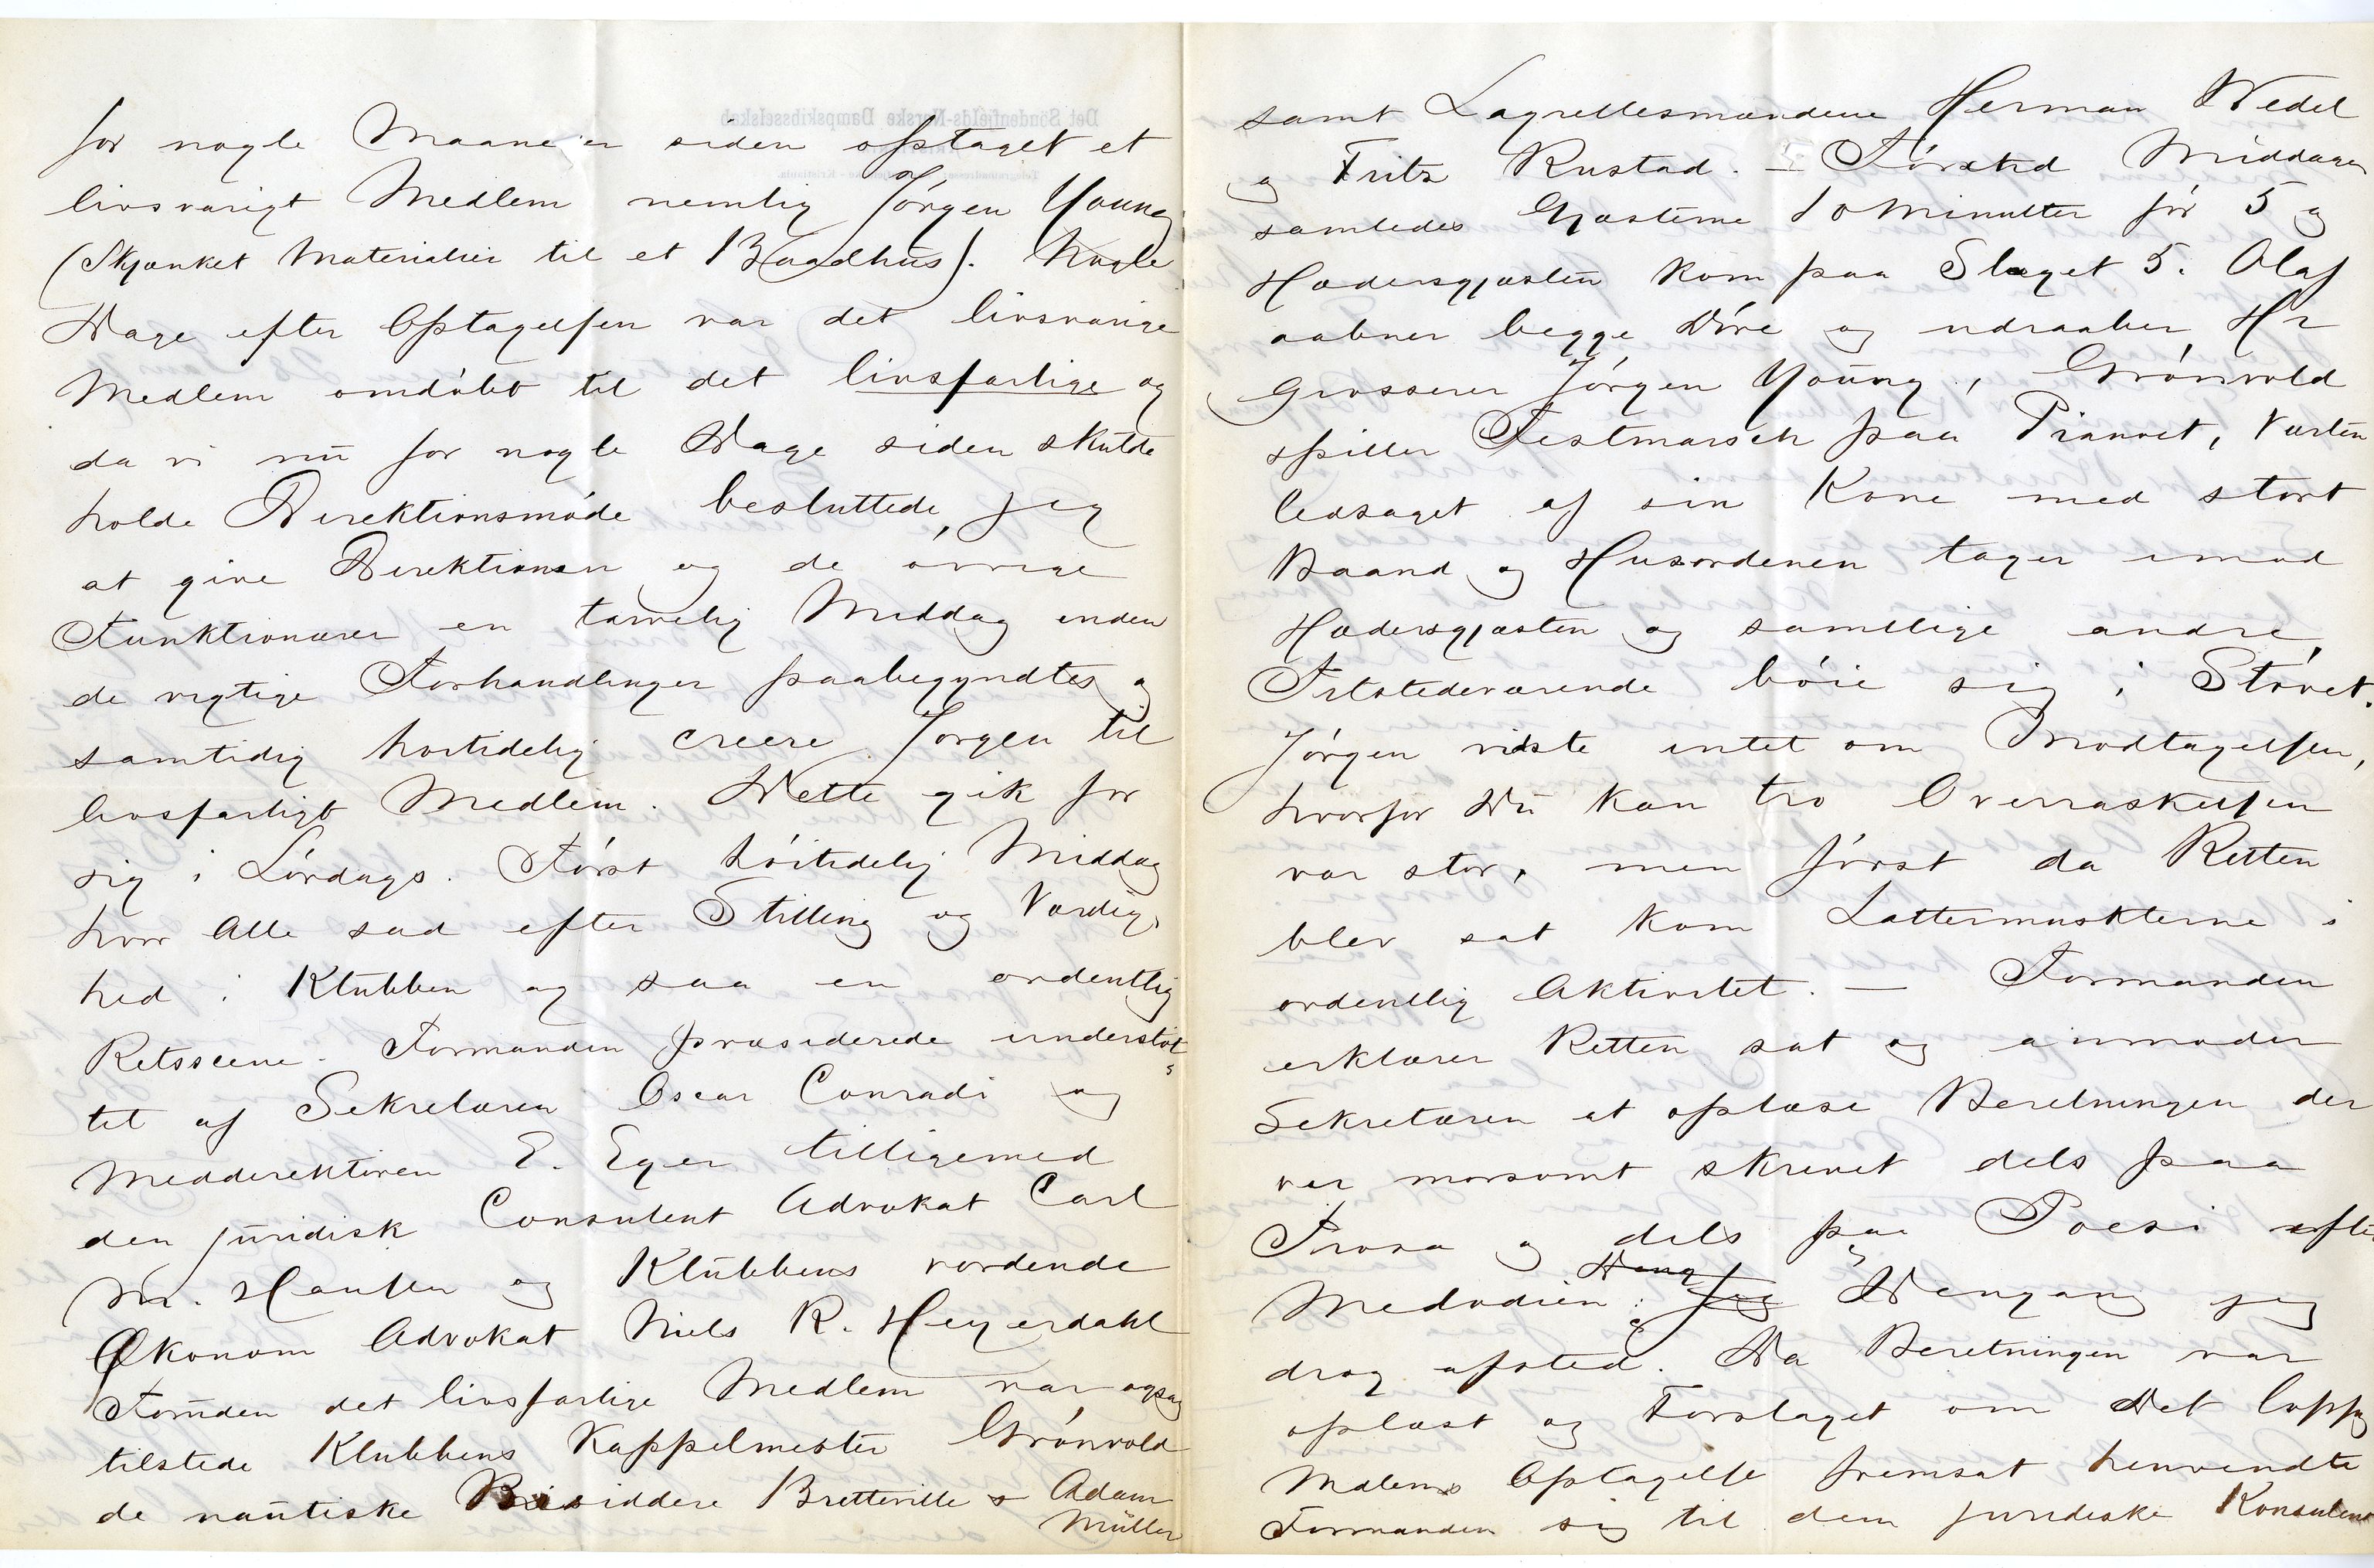 for nogle Maaneder siden optaget et
livsvarigt Medlem nemlig Jörgen Young
(Skjænket Materialier til et Baadhus). Nogle
Dage efter Optagelsen var det livsvarige
Medlem omdöbt til det livsfarlige og
da vi nu for nogle Dage siden skulde
holde Direktionsmöde besluttede jeg
at give Direktionen og de övrige
Funktionærer en tarvelig Middag inden
de vigtige Forhandlinger paabegyndtes og
samtidig höitidelig creere Jörgen til
livsfarligt Medlem. Dette gik for
sig i Lördags. Först höitidelig Middag
hvor Alle sad efter Stilling og Værdig-
hed i Klubben og saa en ordentlig
Retsscene. Formanden præsiderede understöt-
tet af Sekretæren Oscar Conradi og
Meddirektören E. Eger tilligemed
den juridisk Consulent Advokat Carl
M. Hansen og Klubbens vordende
Økonom Advokat Niels R. Heyerdahl
Foruden det livsfarlige Medlem var ogsaa
tilstede Klubbens Kappelmester Grönvold
de nautiske Bisiddere Bretteville & Adam
Müller
Det Söndenfjelds-Norske Dampskibsselskab
samt Lagrettesmændene Herman Wedel
og Fritz Rustad. – Förend Middagen
samledes Gjæsterne 10 Minutter för 5 og
Hædersgjæsten kom paa Slaget 5. Olaf
aabner begge Döre og udraaber Hr
Grosserer Jörgen Young, Grönvold
spiller Festmarsch paa Pianoet, Værten
ledsaget af sin Kone med stort
Baand og Husordenen tager imod
Hædersgjæsten og samtlige andre
Tilstedeværende böie sig i Stövet.
Jörgen vidste intet om Modtagelsen,
hvorfor Du kan tro Overraskelsen
var stor, men först da Retten
blev sat kom Lattermusklerne i
ordentlig Aktivitet. — Formanden
erklærer Retten sat og anmoder
Sekretæren at oplæse Beretningen der
var morsomt skrevet dels paa
Prosa og dels paa Poesi efter
Melodien: Dengang jeg
drog afsted. Da Beretningen var
oplæst og Forslaget om Det
Medlems Optagelse fremsat henvendte
Formanden sig til den juridiske Konsulent